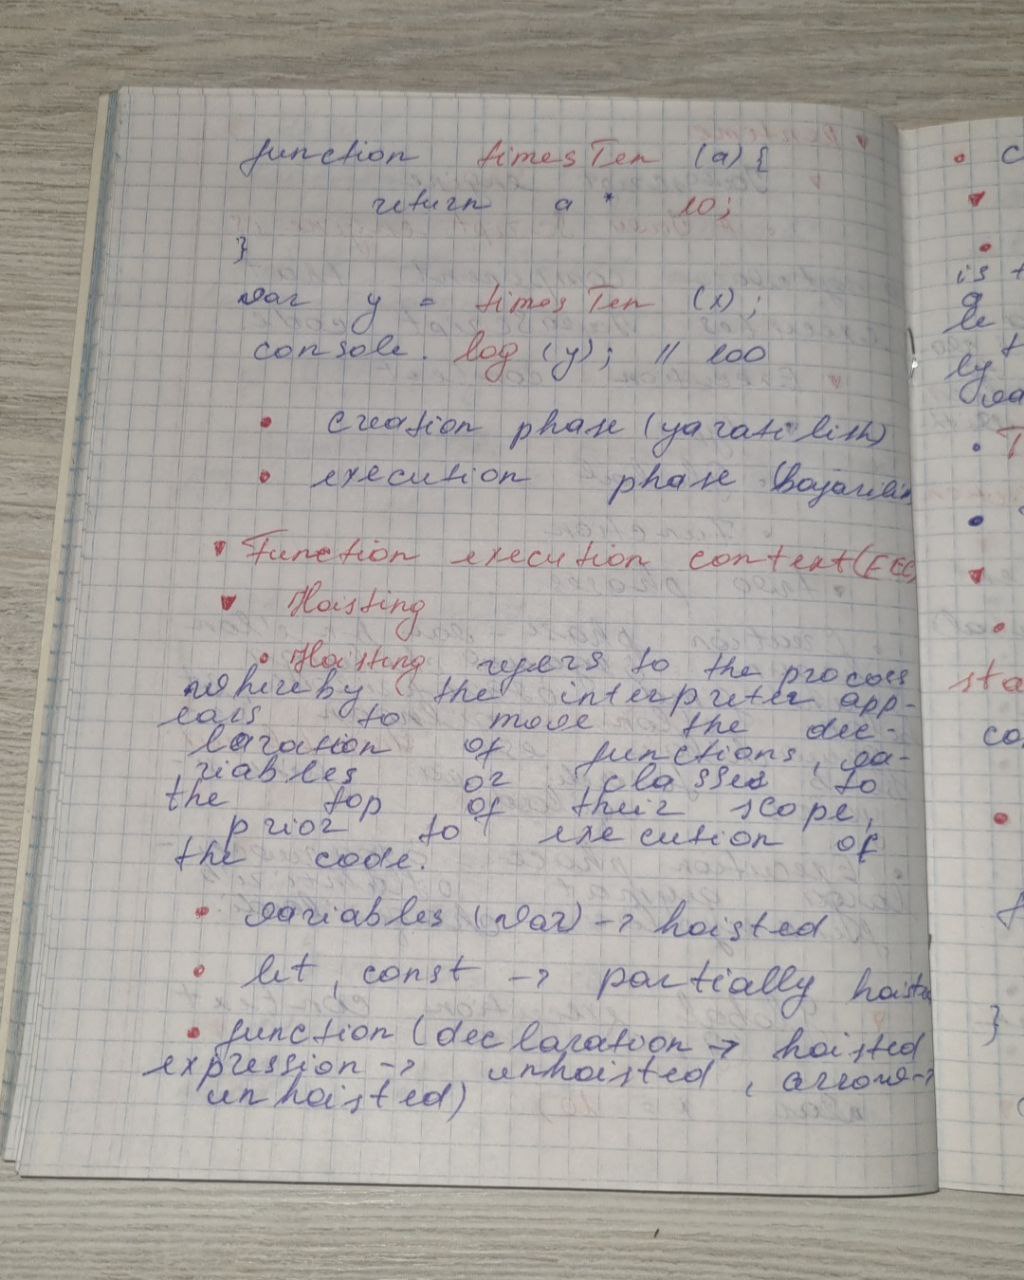 function timesTen (a) {
return a * 10;
}
var y = timesTen (x);
console.log (y); // 100
• creation phase (yaratilish)
• execution phase
▾ Function execution context (FEC)
▾ Hoisting
• Hoisting refers to the process
whereby the interpreter app-
ears to move the dec-
laration of functions, va-
riables or classes to
the top of their scope,
prior to execution of
the code.
• variables (var) -> hoisted
• let, const -> partially
• function (declaration -> hoisted
expression -> unhoisted, arrow ->
unhoisted)
is t
sta
co
}